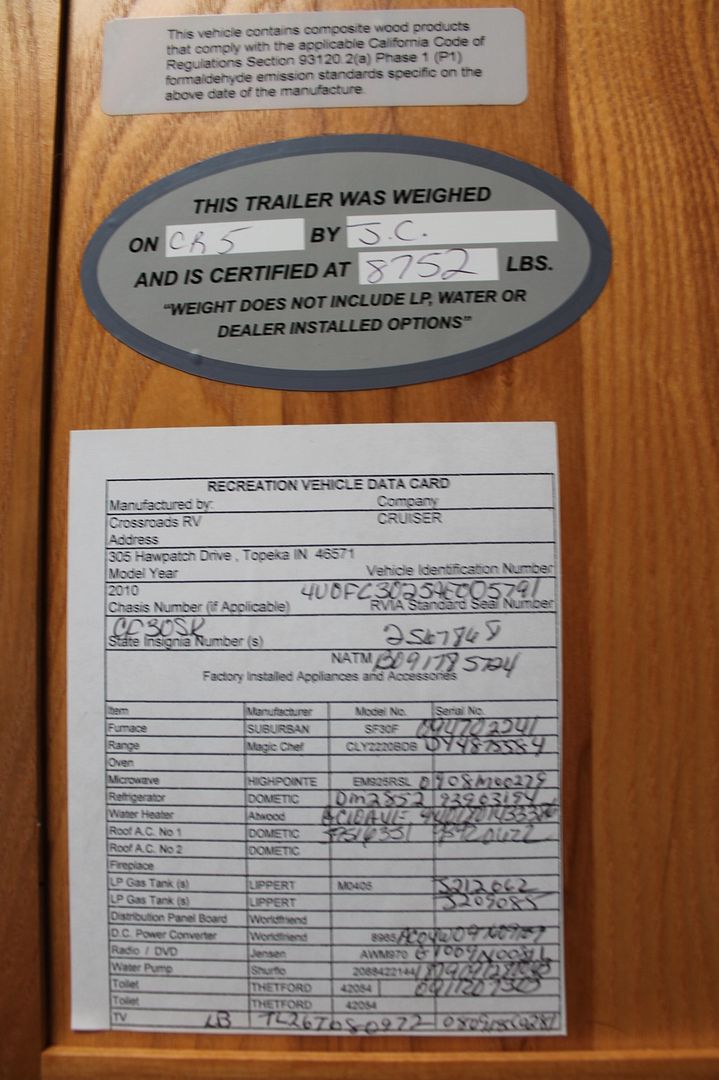 This vehicle contains composite wood products
that comply with the applicable California Code of
Regulations Section 93120.2(a) Phase 1 (P1)
formaldehyde emission standards specific on the
above date of the manufacture.
THIS TRAILER WAS WEIGHED
ON CR5 BY J.C.
AND IS CERTIFIED AT 8752 LBS.
"WEIGHT DOES NOT INCLUDE LP, WATER OR
DEALER INSTALLED OPTIONS"
RECREATION VEHICLE DATA CARD
Manufactured by: Company
Crossroads RV CRUISER
Address
305 Hawpatch Drive , Topeka IN 46571
Model Year Vehicle Identification Number
2010 4V0FC3025AE005791
Chasis Number (if Applicable) RVIA Standard Seal Number
CF30SK 2567868
State Insignia Number (s)
NATM
Factory Installed Appliances and Accessories
Item Manufacturer Model No. Serial No.
Furnace SUBURBAN SF30F
Range Magic Chef CLY2220BDB
Oven
Microwave HIGHPOINTE EM925RSL 0908M00279
Refrigerator DOMETIC Dm2852 93903194
Water Heater Atwood
Roof A.C. No 1 DOMETIC
Roof A.C. No 2 DOMETIC
Fireplace
LP Gas Tank (s) LIPPERT M0405 5212662
LP Gas Tank (s) LIPPERT 5209085
Distribution Panel Board Worldfriend
D.C. Power Converter Worldfriend 8965
Radio / DVD Jensen AWM970
Water Pump Shurflo 2088422144
Toilet THETFORD 42084
Toilet THETFORD 42084
TV LB